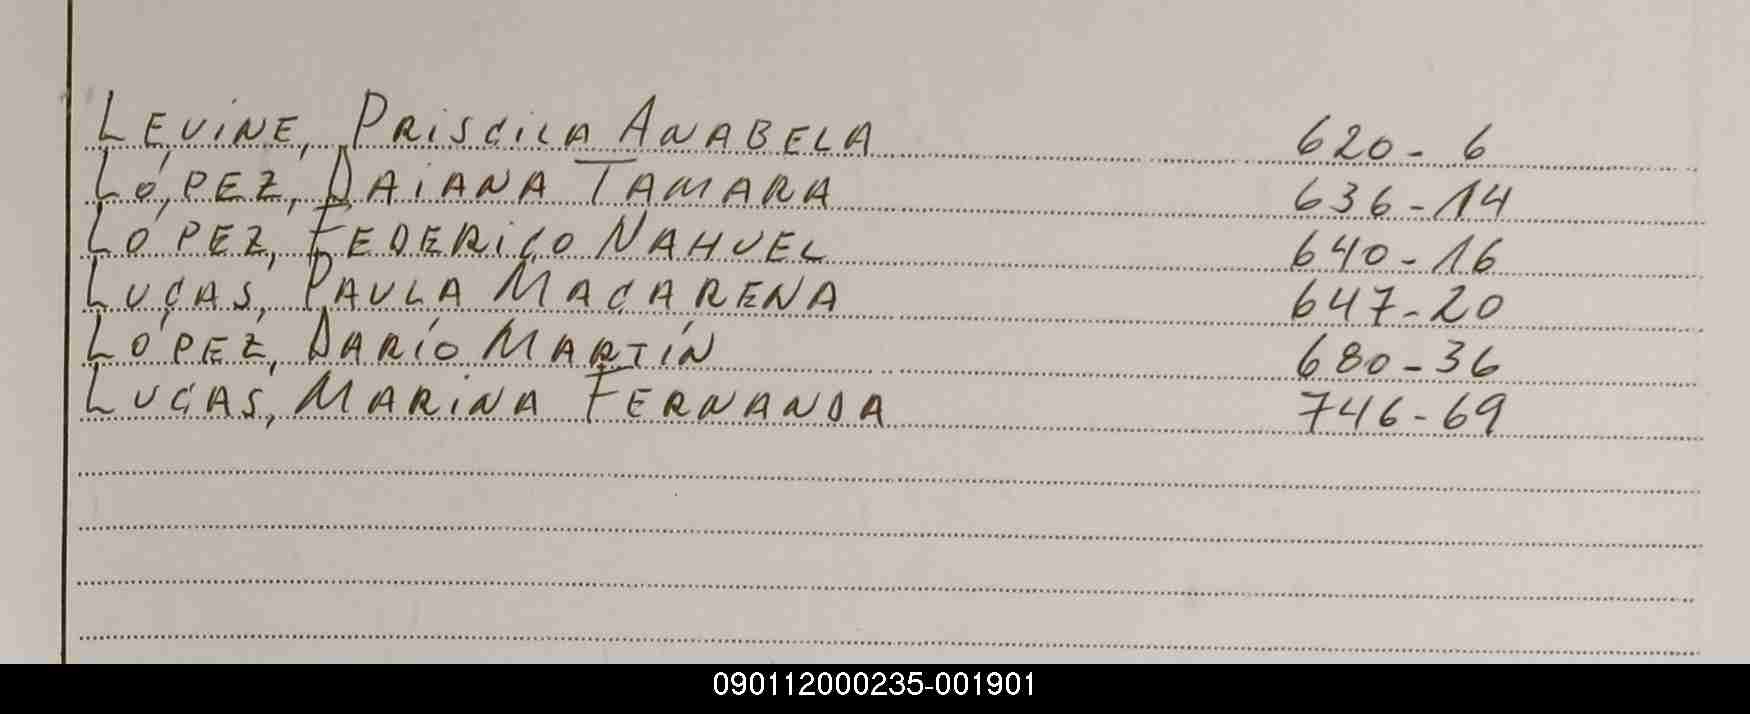 LEVINE, PRISCILA ANABELA 620 - 6
LÓPEZ, DAIANA TAMARA 636 - 14
LÓPEZ, FEDERICO NAHUEL 640 - 16
LUCAS, PAULA MACARENA 647 - 20
LÓPEZ, DARÍO MARTÍN 680 - 36
LUCAS, MARINA FERNANDA 746 - 69
090112000235-001901